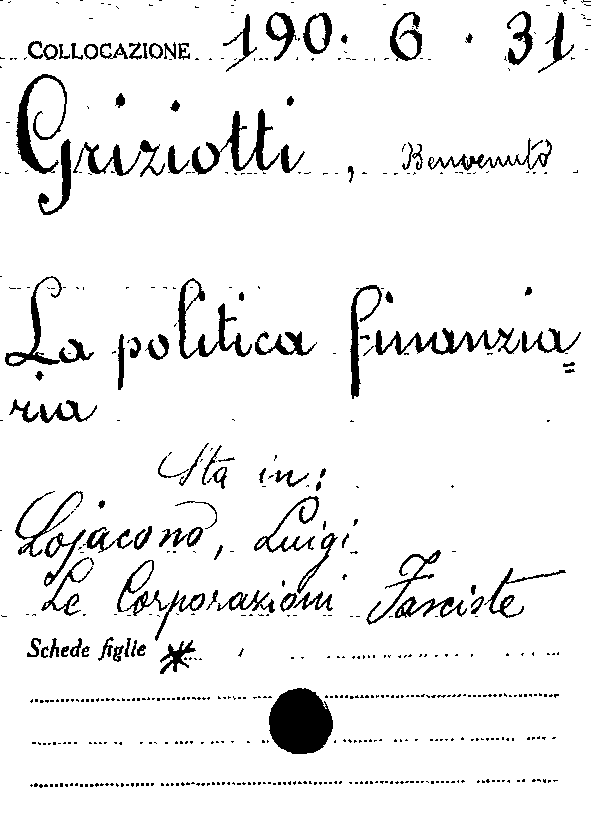 COLLOCAZIONE 190. 6. 31
Griziotti, Benvenuto
La politica finanzia=
ria
Sta in:
Lojacono, Luigi
Le Corporazioni Fasciste
Schede figlie *